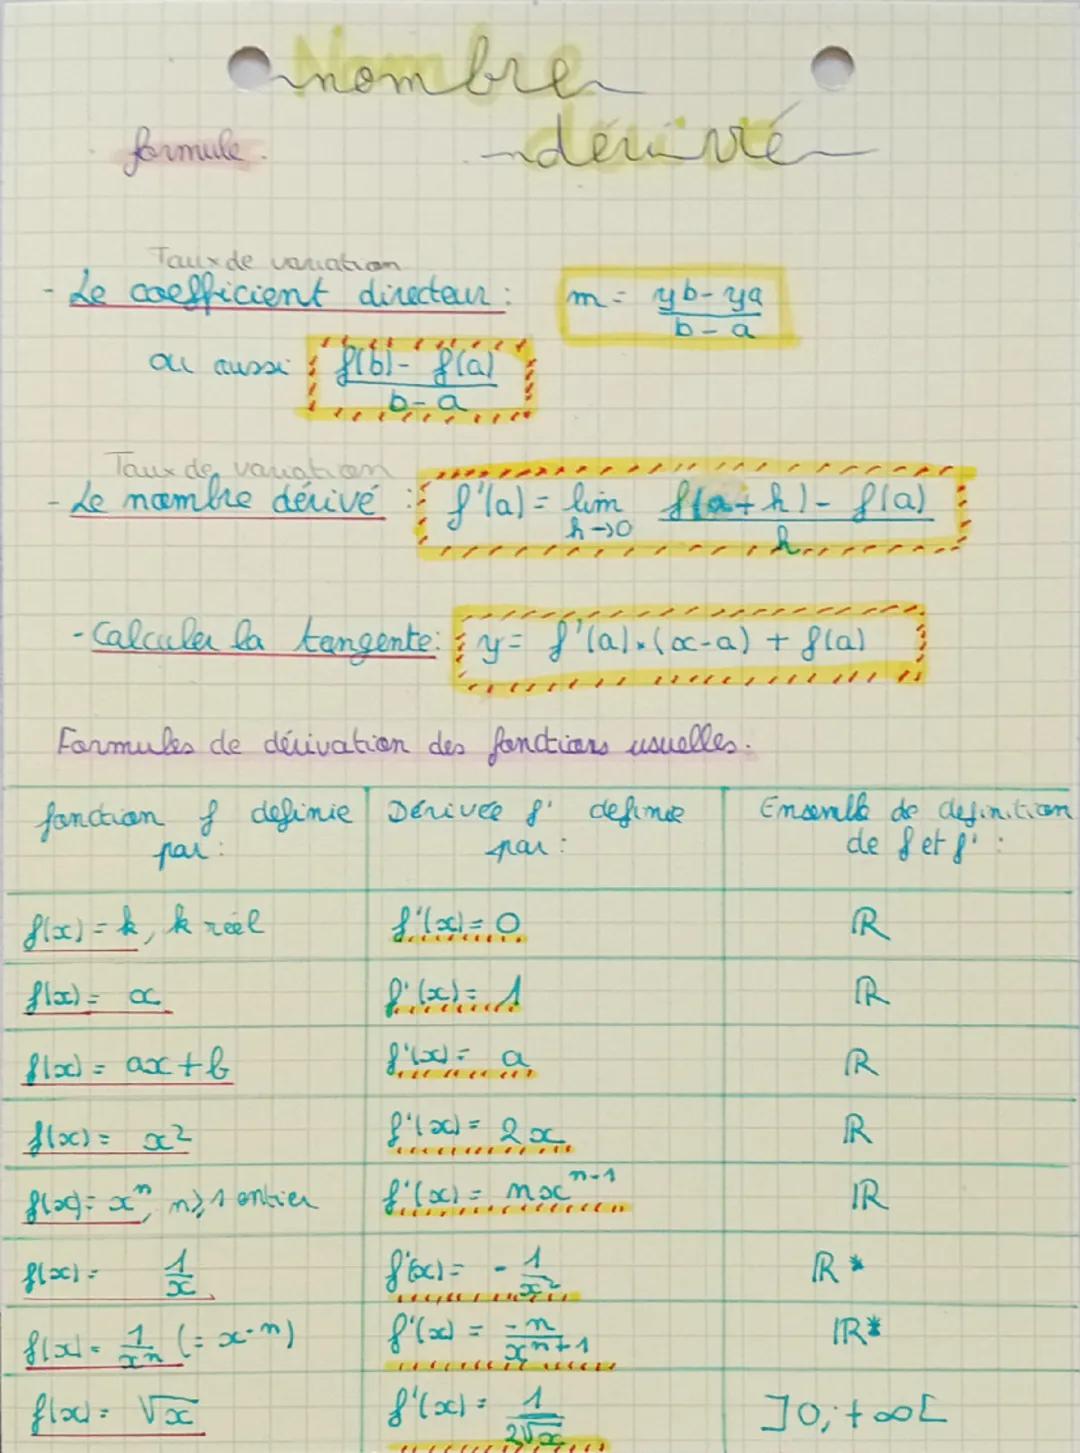 nombre
dérivé
formule.
Taux de variation
- Le coefficient directeur : m = yb - ya / b - a
ou aussi f(b) - f(a) / b - a
Taux de variation
- Le nombre dérivé : f'(a) = lim h→0 f(a+h) - f(a) / h
- Calculer la tangente : y = f'(a) × (x-a) + f(a)
Formules de dérivation des fonctions usuelles.
fonction f definie par : | Dérivée f' definie par : | Ensemble de definition de f et f' :
f(x) = k, k réel | f'(x) = 0 | ℝ
f(x) = x | f'(x) = 1 | ℝ
f(x) = ax + b | f'(x) = a | ℝ
f(x) = x² | f'(x) = 2x | ℝ
f(x) = xⁿ, n ⩾ 1 entier | f'(x) = nxⁿ⁻¹ | ℝ
f(x) = 1/x | f'(x) = - 1/x² | ℝ*
f(x) = 1/xⁿ (= x⁻ⁿ) | f'(x) = -n/xⁿ⁺¹ | ℝ*
f(x) = √x | f'(x) = 1/2√x | ]0; +∞[